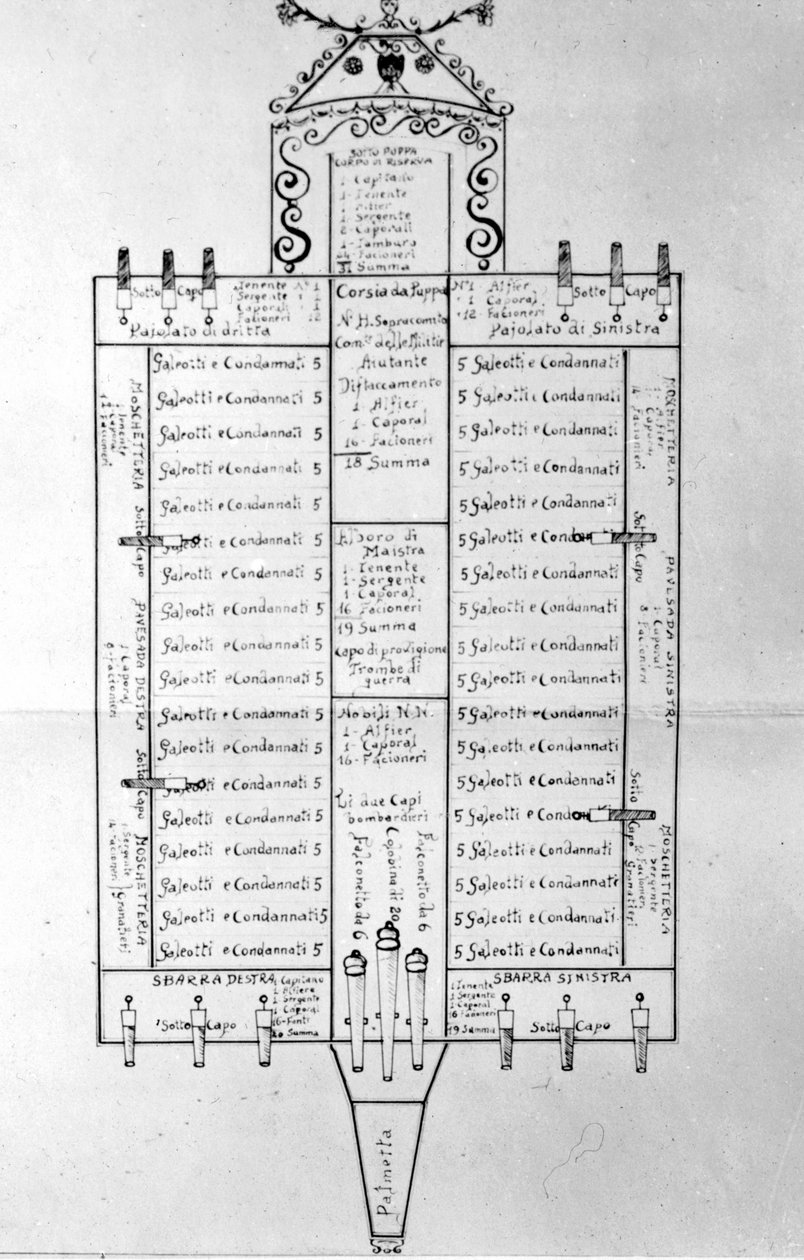 SOTTO PUPPA
CORPO DI RISERVA
1- Capitano
1- Tenente
1- Alfier
1- Sergente
2- Caporali
1- Tamburo
24- Facioneri
31 Summa
Sotto Capo
Tenente N° 1
Sergente 1
Caporali 1
Facioneri 12
Pajolato di dritta
Corsia da Puppa
N. H. Sopracomito
Com.te delle Militie
Aiutante
Distaccamento
1- Alfier
1- Caporal
16- Facioneri
18 Summa
N° 1 Alfier
1 Caporal
12- Facioneri
Sotto Capo
Pajolato di Sinistra
MOSCHETTERIA
1 Tenente
1 Caporal
12 Facioneri
Sotto Capo
PAVESADA DESTRA
1 Caporal
8- Facioneri
Sotto Capo
MOSCHETTERIA
1 Sergente
14 Facioneri
Granatieri
Galeotti e Condannati 5
Galeotti e Condannati 5
Galeotti e Condannati 5
Galeotti e Condannati 5
Galeotti e Condannati 5
Galeotti e Condannati 5
Galeotti e Condannati 5
Galeotti e Condannati 5
Galeotti e Condannati 5
Galeotti e Condannati 5
Galeotti e Condannati 5
Galeotti e Condannati 5
Galeotti e Condannati 5
Galeotti e Condannati 5
Galeotti e Condannati 5
Galeotti e Condannati 5
Galeotti e Condannati 5
Galeotti e Condannati 5
Alboro di
Maistra
1- Tenente
1- Sergente
1 Caporal
16 Facioneri
19 Summa
Capo di provigione
Trombe di
guerra
Nobili N.N.
1- Alfier
1- Caporal
16- Facioneri
Li due Capi
bombardieri
Falconetto da 6
Colobrina di 20
Falconetto da 6
5 Galeotti e Condannati
5 Galeotti e Condannati
5 Galeotti e Condannati
5 Galeotti e Condannati
5 Galeotti e Condannati
5 Galeotti e Condannati
5 Galeotti e Condannati
5 Galeotti e Condannati
5 Galeotti e Condannati
5 Galeotti e Condannati
5 Galeotti e Condannati
5 Galeotti e Condannati
5 Galeotti e Condannati
5 Galeotti e Condannati
5 Galeotti e Condannati
5 Galeotti e Condannati
5 Galeotti e Condannati
5 Galeotti e Condannati
MOSCHETTERIA
1- Alfier
1- Caporal
14 Facioneri
Sotto Capo
PAVESADA SINISTRA
1- Caporal
8 Facioneri
Sotto Capo
MOSCHETTERIA
1 Sergente
12 Facioneri
Granatieri
SBARRA DESTRA
1 Capitano
1 Alfiere
1 Sergente
1 Caporal
16- Fanti
20 Summa
Sotto Capo
SBARRA SINISTRA
1 Tenente
1 Sergente
1 Caporal
16 Facioneri
19 Summa
Sotto Capo
Palmetta